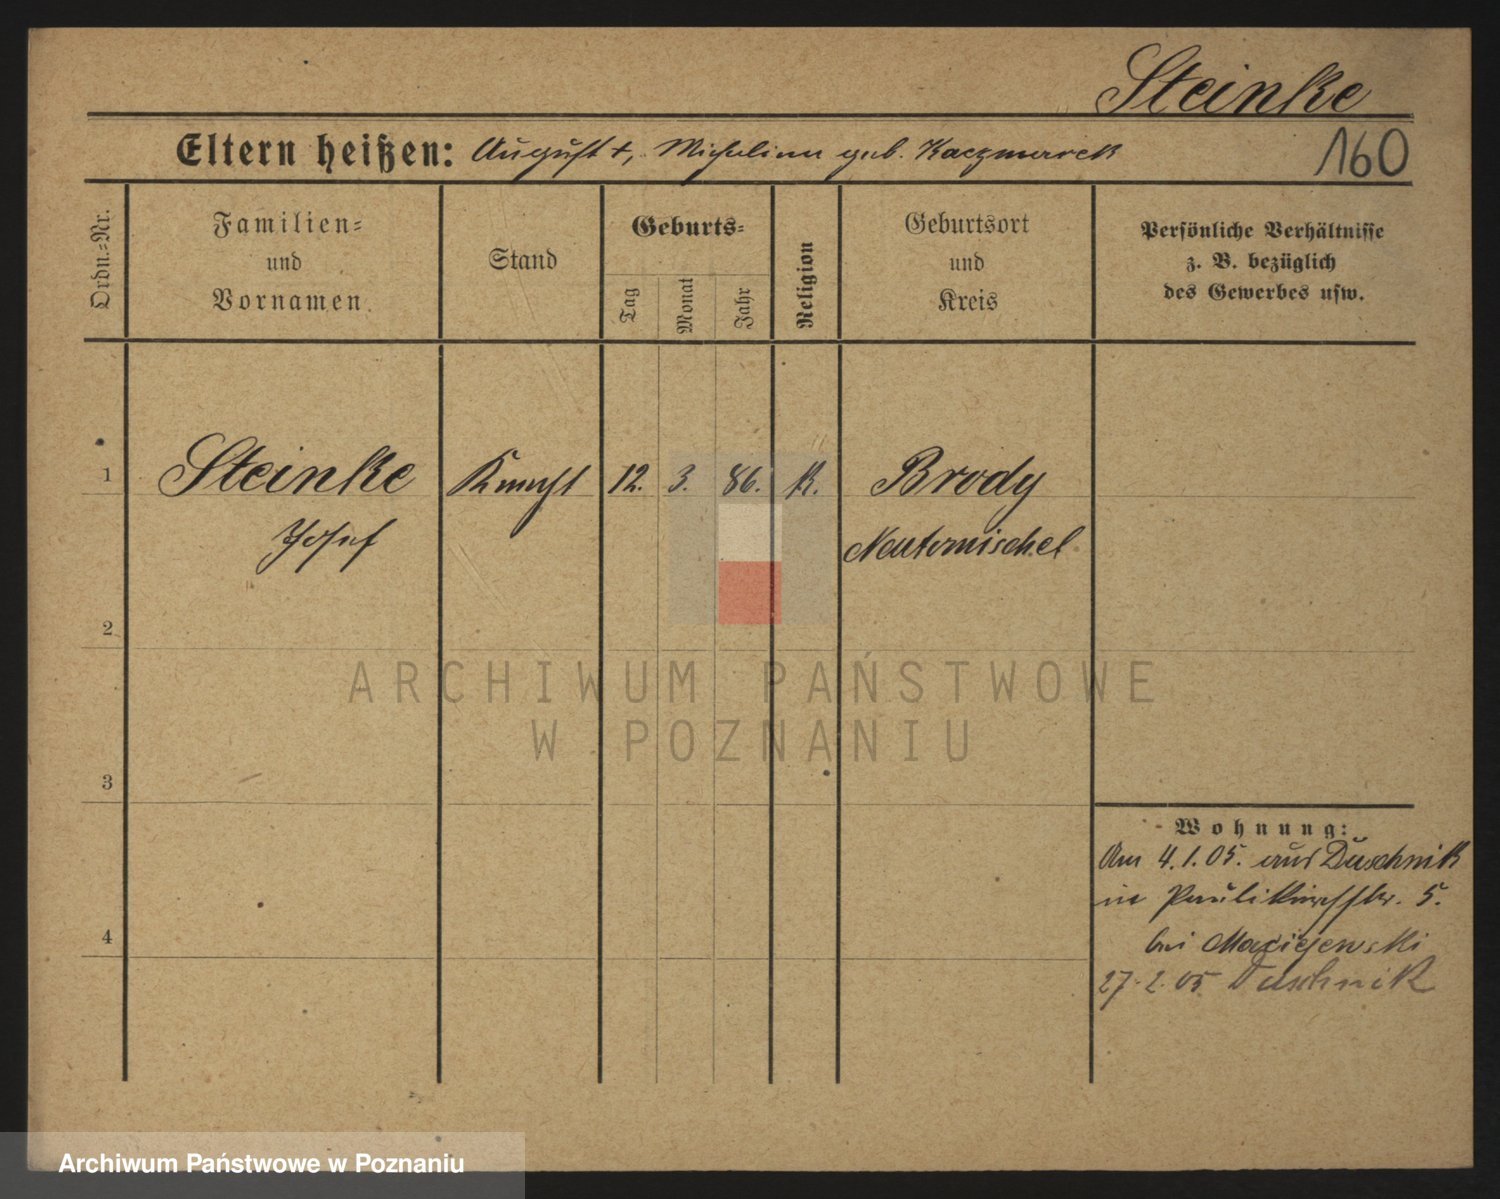 Steinke
Eltern heißen: August †, Michalina geb. Kaczmarek
160
Ordn.=Nr.
Familien=
und
Vornamen
Stand
Geburts=
Tag
Monat
Jahr
Religion
Geburtsort
und
Kreis
Persönliche Verhältnisse
z. B. bezüglich
des Gewerbes usw.
1 Steinke Knecht 12. 3. 86. K. Brody
Josef Neutomischel
2
ARCHIWUM PAŃSTWOWE
W POZNANIU
3
Wohnung:
Am 4.1.05. aus Duschnik
in Paulikirchstr. 5.
4
bei Maciejewski
27.2.05 Duschnik
Archiwum Państwowe w Poznaniu